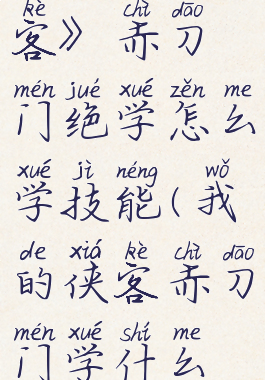 kè chì dāo
客》 赤刀
mén jué xué zěn me
门绝学怎么
xué jì néng wǒ
学技能(我
de xiá kè chì dāo
的侠客赤刀
mén xué shí me
门学什么